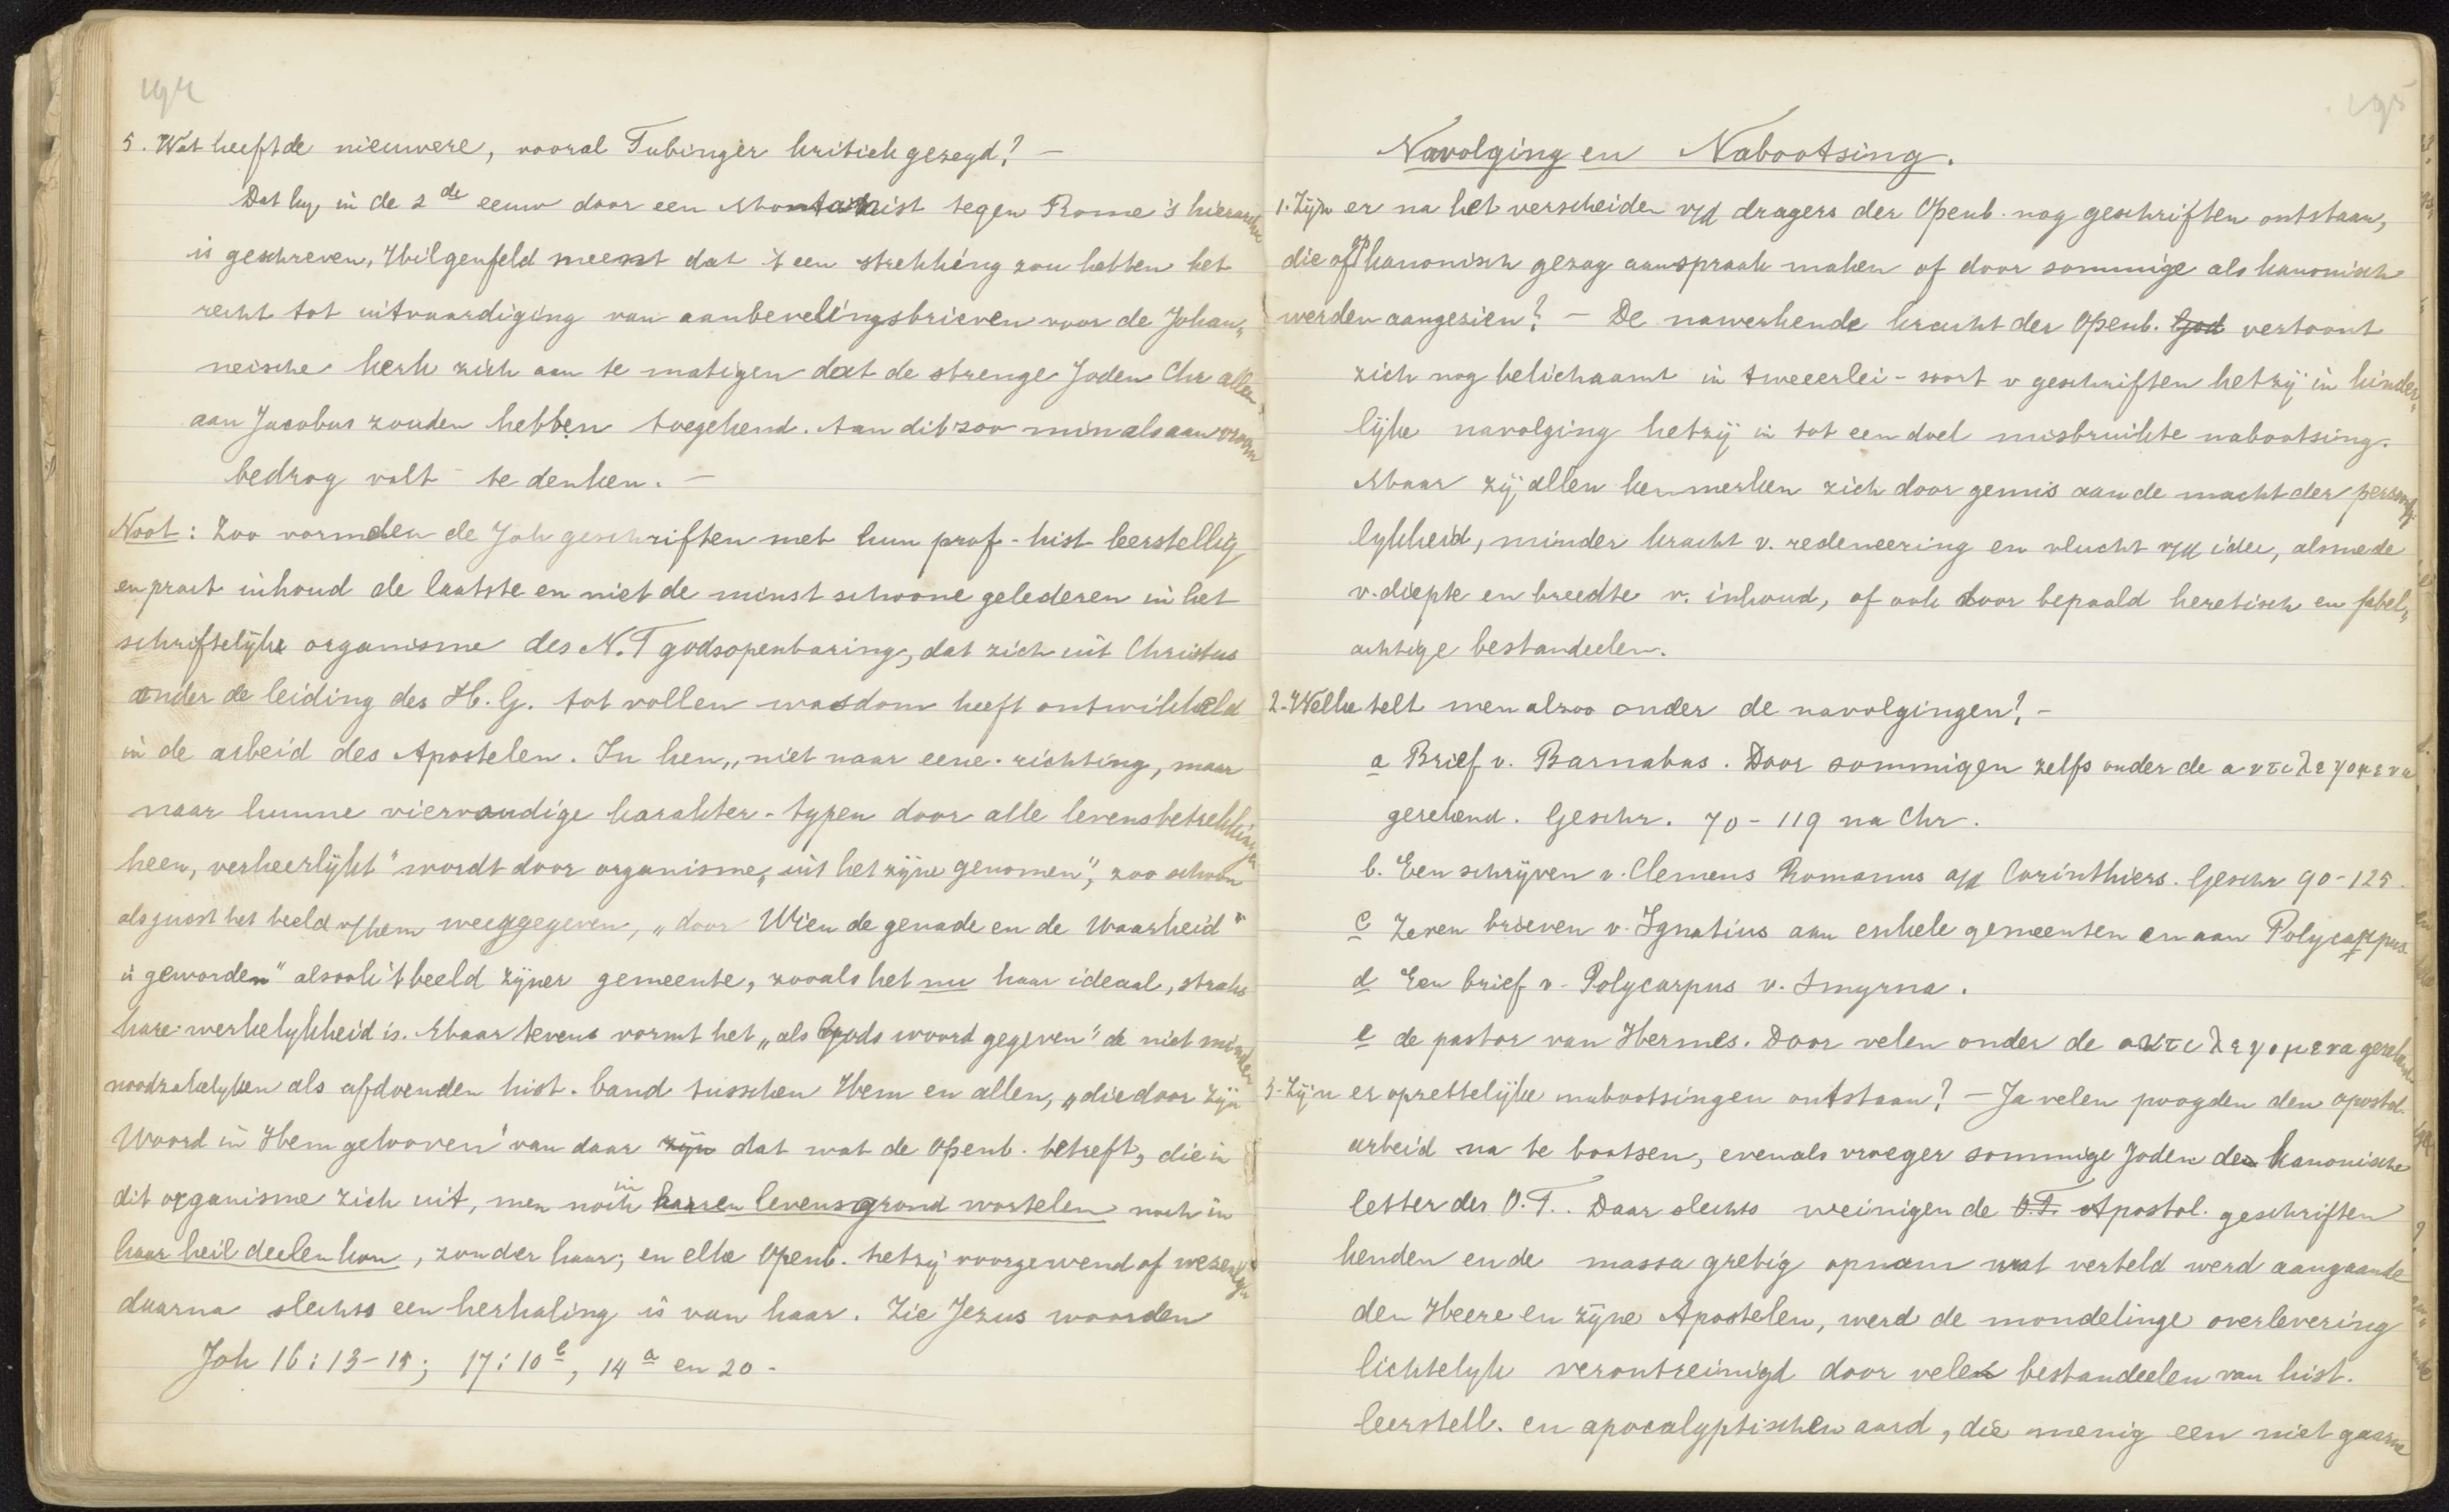 194
5. Wat heeft de nieuwere, vooral Tubinger kritiek gezegd? —
Dat hy, in de 2de eeuw door een Montanist tegen Rome's hierarchie
is geschreven, Hilgenfeld meent dat 't een strekking zou hebben het
recht tot uitvaardiging van aanbevelingsbrieven voor de Johan„
neische kerk zich aan te matigen dat de strenge Joden Chr allen
aan Jacobus zouden hebben toegekend. Aan dit zoo min als aan vroom
bedrog valt te denken. —
Noot: Zoo vormden de Joh geschriften met hun prof-hist leerstellig
en pract inhoud de laatste en niet de minst schoone gelederen in het
schriftelyke organisme des N.T godsopenbaring, dat zich uit Christus
onder de leiding des H.G. tot vollen wasdom heeft ontwikkeld
in de arbeid des Apostelen. In hen „niet naar eene richting, maar
naar hunne viervoudige karakter-typen door alle levensbetrekkingen
heen, verheerlykt" wordt door organisme „uit het zyne genomen", zoo schoon
als juist het beeld v/hem weergegeven, „door Wien de genade en de Waarheid"
is geworden" alsook 't beeld zyner gemeente, zooals het nu haar ideaal, straks
hare werkelykheid is. Maar tevens vormt het „als Gods woord gegeven" de niet minder
noodzakelyken als afdoenden hist. band tusschen Hem en allen, „die door Zyn
Woord in Hem gelooven" van daar zyn dat wat de Openb. betreft, die in
dit organisme zich uit, men noch in haaren levensgrond wortelen noch in
haar heil deelen kon, zonder haar; en elke Openb. hetzy voorgewend of wezenlyk
daarna slechts een herhaling is van haar. Zie Jezus woorden
Joh 16:13-15; 17:10b, 14a en 20 -
195
Navolging en Nabootsing.
1. Zyn er na het verscheiden v/d dragers der Openb. nog geschriften ontstaan,
die of op kanonisch gezag aanspraak maken of door sommige als kanonisch
werden aangezien? — De nawerkende kracht der Openb. God vertoont
zich nog belichaamt in tweeerlei-soort v geschriften hetzy in kinder„
lyke navolging hetzy in tot een doel misbruikte nabootsing.
Maar zy allen kenmerken zich door gemis aan de macht der persoon„
lykheid, minder kracht v. redeneering en vlucht v/d idee, alsmede
v. diepte en breedte v. inhoud, of ook door bepaald heretisch en fabel„
achtige bestandeelen.
2. Welke telt men alzoo onder de navolgingen? —
a Brief v. Barnabas. Door sommigen zelfs onder de αντιλεγομενα
gerekend. Geschr. 70-119 na Chr.
b. Een schryven v. Clemens Romanus a/d Corinthiers. Geschr 90-125.
c Zeven brieven v. Ignatius aan enkele gemeenten en aan Polycarpus.
d Een brief v. Polycarpus v. Smyrna.
e de pastor van Hermes. Door velen onder de αντιλεγομενα gerekend.
3. Zyn er opzettelyke nabootsingen ontstaan? — Ja velen poogden den apostol.
arbeid na te bootsen, evenals vroeger sommige Joden den kanonische
letter der O.T.. Daar slechts weinigen de O.T. Apostol. geschriften
kenden en de massa gretig opnam wat verteld werd aangaande
den Heere en zyne Apostelen, werd de mondelinge overlevering
lichtelyk verontreinigd door velen bestandeelen van hist.
leerstell. en apocalyptischen aard, die menig een niet gaarne